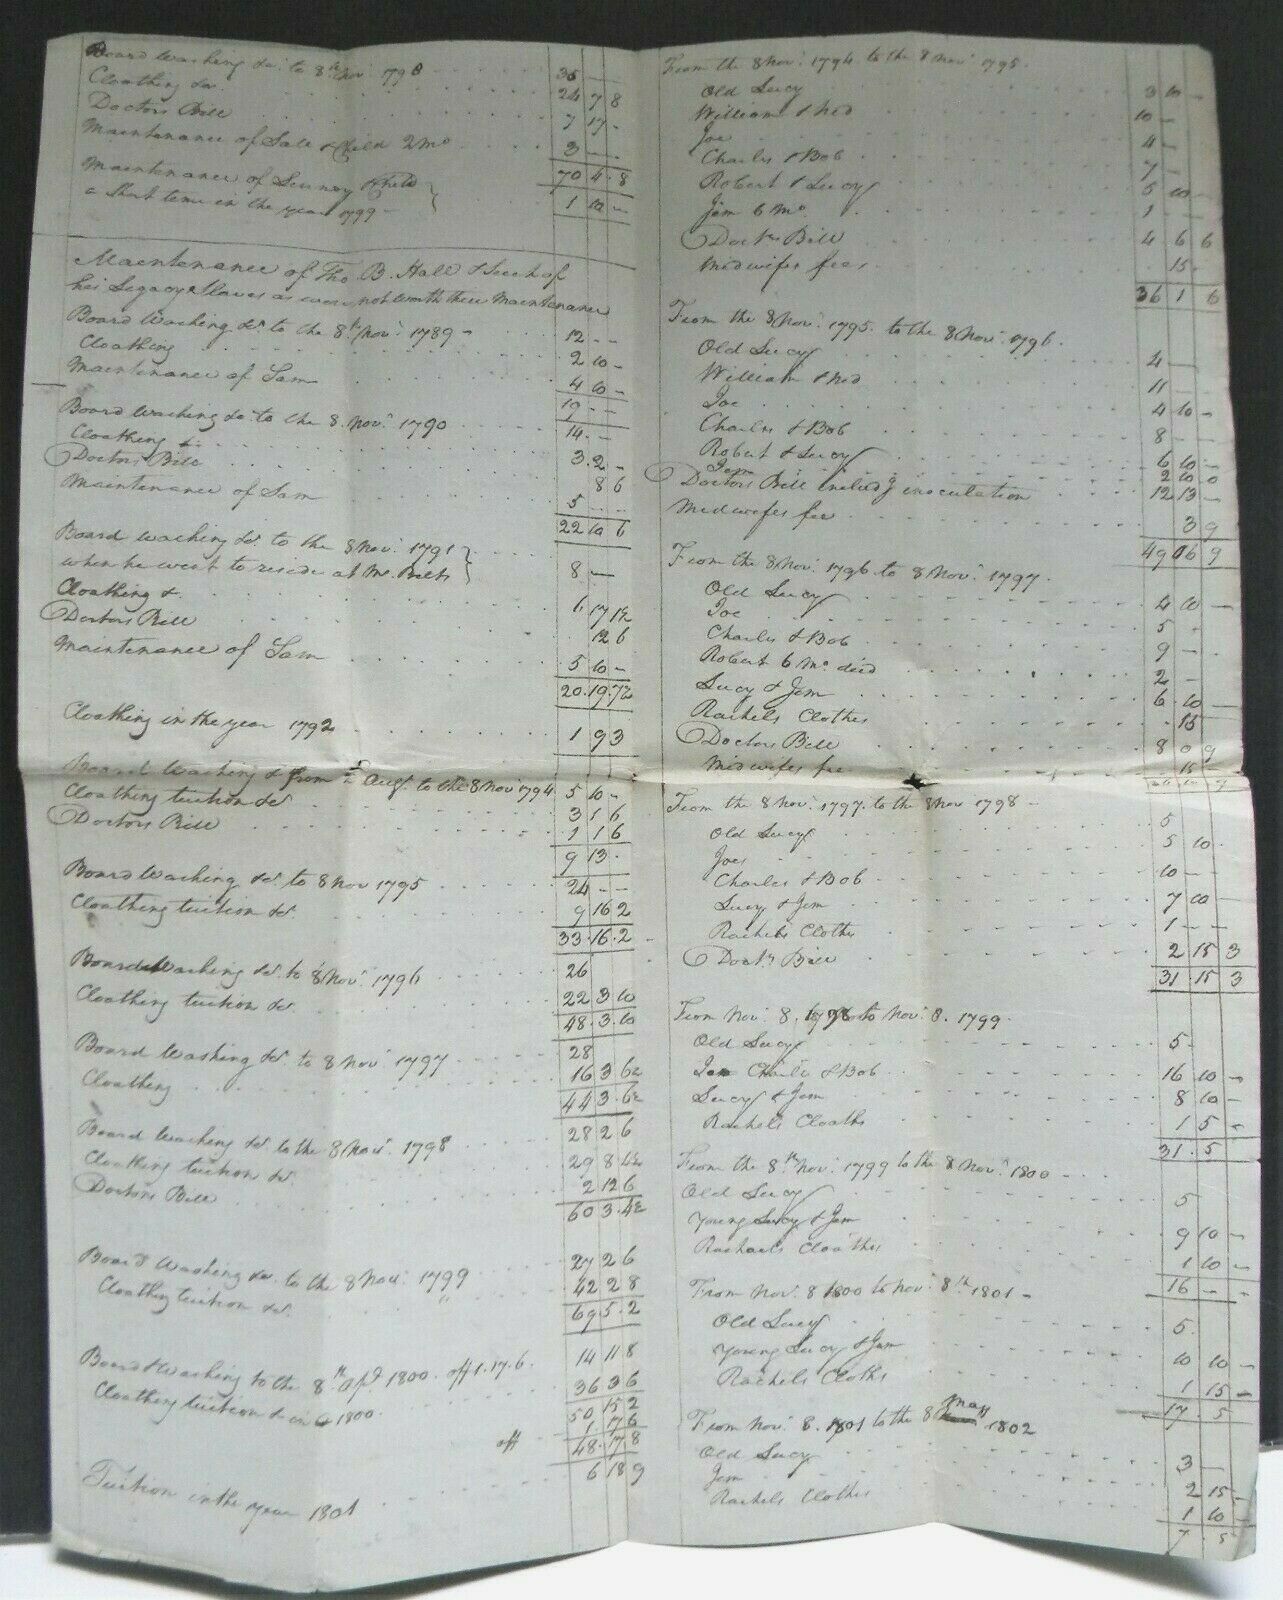 Board Washing &c. to 8th Nov. 1798 36 — —
Cloathing &c. 24 7 8
Doctors Bill 7 17 -
Maintenance of Sall & Child 2 mo 3 — —
70 4 8
Maintenance of & Child
a short time in the year 1799 - 1 10 -
Maintenance of Tho. B. Hall & Such of
his Legacy Slaves as were not worth their Maintenance
Board Washing &c. to the 8th Nov. 1789 - 12 - -
Cloathing 2 10 -
Maintenance of Sam 4 10 -
19 - -
Board Washing &c. to the 8. Nov. 1790 14 - -
Cloathing &c. 3 2 -
Doctors Bill 8 6
Maintenance of Sam 5 - -
22 10 6
Board Washing &c. to the 8 Nov. 1791
when he went to reside at Mr. 8 —
Cloathing &. 6 17 1½
Doctors Bill 12 6
Maintenance of Sam 5 10 -
20. 19. 7½
Cloathing in the year 1792 1 9 3
Board Washing & from Augt. to the 8 Nov 1794 5 10 -
Cloathing tuition &c. 3 1 6
Doctors Bill 1 1 6
9 13 -
Board Washing &c. to 8 Nov 1795 24 - -
Cloathing tuition &c. 9 16 2
33. 16. 2
Board Washing &c. to 8 Nov. 1796 26
Cloathing tuition &c. 22 3 10
48. 3. 10
Board Washing &c. to 8 Nov. 1797 28
Cloathing 16 3 6½
44 3. 6½
Board Washing &c. to the 8 Nov. 1798 28 2 6
Cloathing tuition &c. 29 8 4½
Doctors Bill 2 12 6
60 3. 4½
Board Washing &c. to the 8 Nov. 1799 27 2 6
Cloathing tuition &c. " 42 2 8
69 5. 2
Board & Washing to the 8th Apl. 1800. off 1. 17. 6. 14 11 8
Cloathing tuition & in 1800 36 3 6
50 15 2
off 1 17 6
48. 17 8
Tuition in the year 1801 6 18 9
From the 8 Nov. 1794 to the 8 Nov. 1795
Old Lucy 3 10 -
William & Ned 10 -
Joe 4 -
Charles & Bob 7 -
Robert & Lucy 5 10 -
Jem 6 mo. 1 - -
Doctrs Bill 4 6 6
Midwifes fees 15 -
36 1 6
From the 8 Nov. 1795. to the 8 Nov. 1796.
Old Lucy 4 —
William & Ned 11 -
Joe 4 10 -
Charles & Bob 8 - -
Robert & Lucy 6 10 -
Jem 2 10 0
Doctors Bill includg inoculation 12 13 -
Midwifes fee 3 9
49 16 9
From the 8 Nov. 1796 to 8 Nov. 1797.
Old Lucy 4 10 -
Joe 5 -
Charles & Bob 9 -
Robert 6 Mo. died 2 -
Lucy & Jem 6 10 -
Rachels Clothes 15
Doctors Bill 8 0 9
Midwifes fee 15
9
From the 8 Nov. 1797. to the 8 Nov 1798 -
Old Lucy 5
Joe 5 10 -
Charles & Bob 10 - -
Lucy & Jem 7 10 -
Rachels Clothes 1 - -
Doctrs Bill 2 15 3
31. 15 3
From Nov. 8. 1798 to Nov. 8. 1799.
Old Lucy 5 -
Joe Charles & Bob 16 10 -
Lucy & Jem 8 10 -
Rachels Cloaths 1 5 -
31. 5
From the 8th Nov. 1799 to the 8 Nov. 1800
Old Lucy 5
Young Lucy & Jem 9 10 -
Rachaels Cloathes 1 10 -
16 - -
From Nov. 8 1800 to Nov. 8th 1801 -
Old Lucy 5
Young Lucy & Jem 10 10 -
Rachels Cloths 1 15 -
17. 5
From Nov. 8. 1801 to the 8 May 1802
Old Lucy 3 —
Jem 2 15 -
Rachels Clothes 1 10 -
7 5